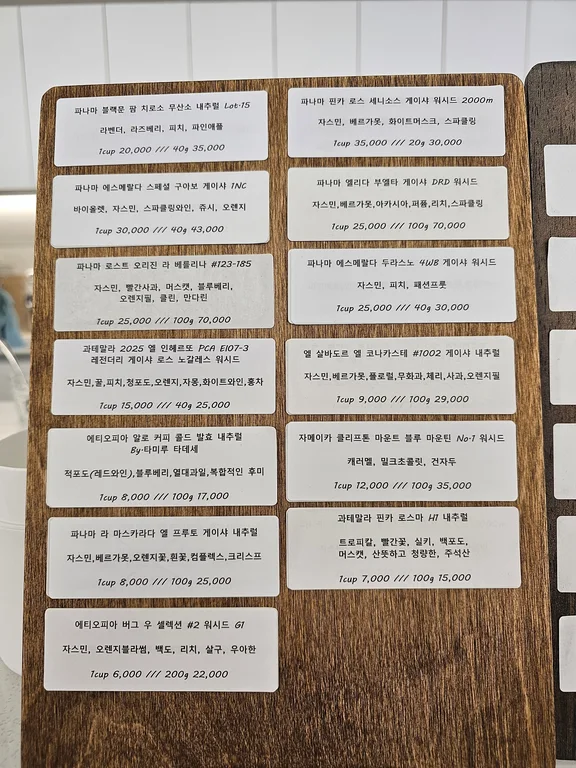 파나마 블랙문 팜 치로소 무산소 내추럴 Lot-15
라벤더, 라즈베리, 피치, 파인애플
1cup 20,000 /// 40g 35,000
파나마 에스메랄다 스페셜 구아보 게이샤 1NC
바이올렛, 자스민, 스파클링와인, 쥬시, 오렌지
1cup 30,000 /// 40g 43,000
파나마 로스트 오리진 라 베를리나 #123-185
자스민, 빨간사과, 머스캣, 블루베리,
오렌지필, 클린, 만다린
1cup 25,000 /// 100g 70,000
과테말라 2025 엘 인헤르또 PCA E107-3
레전더리 게이샤 로스 노갈레스 워시드
자스민,꿀,피치,청포도,오렌지,자몽,화이트와인,홍차
1cup 15,000 /// 40g 25,000
에티오피아 알로 커피 콜드 발효 내추럴
By-타미루 타데세
적포도(레드와인),블루베리,열대과일,복합적인 후미
1cup 8,000 /// 100g 17,000
파나마 라 마스카라다 엘 프루토 게이샤 내추럴
자스민,베르가못,오렌지꽃,흰꽃,컴플렉스,크리스프
1cup 8,000 /// 100g 25,000
에티오피아 버그 우 셀렉션 #2 워시드 G1
자스민, 오렌지블라썸, 백도, 리치, 살구, 우아한
1cup 6,000 /// 200g 22,000
파나마 핀카 로스 세니소스 게이샤 워시드 2000m
자스민, 베르가못, 화이트머스크, 스파클링
1cup 35,000 /// 20g 30,000
파나마 엘리다 부엘타 게이샤 DRD 워시드
자스민,베르가못,아카시아,퍼퓸,리치,스파클링
1cup 25,000 /// 100g 70,000
파나마 에스메랄다 두라스노 4WB 게이샤 워시드
자스민, 피치, 패션프룻
1cup 25,000 /// 40g 30,000
엘 살바도르 엘 코나카스테 #1002 게이샤 내추럴
자스민,베르가못,플로럴,무화과,체리,사과,오렌지필
1cup 9,000 /// 100g 29,000
자메이카 클리프톤 마운트 블루 마운틴 No·1 워시드
캐러멜, 밀크초콜릿, 건자두
1cup 12,000 /// 100g 35,000
과테말라 핀카 로스마 H1 내추럴
트로피칼, 빨간꽃, 실키, 백포도,
머스캣, 산뜻하고 청량한, 주석산
1cup 7,000 /// 100g 15,000